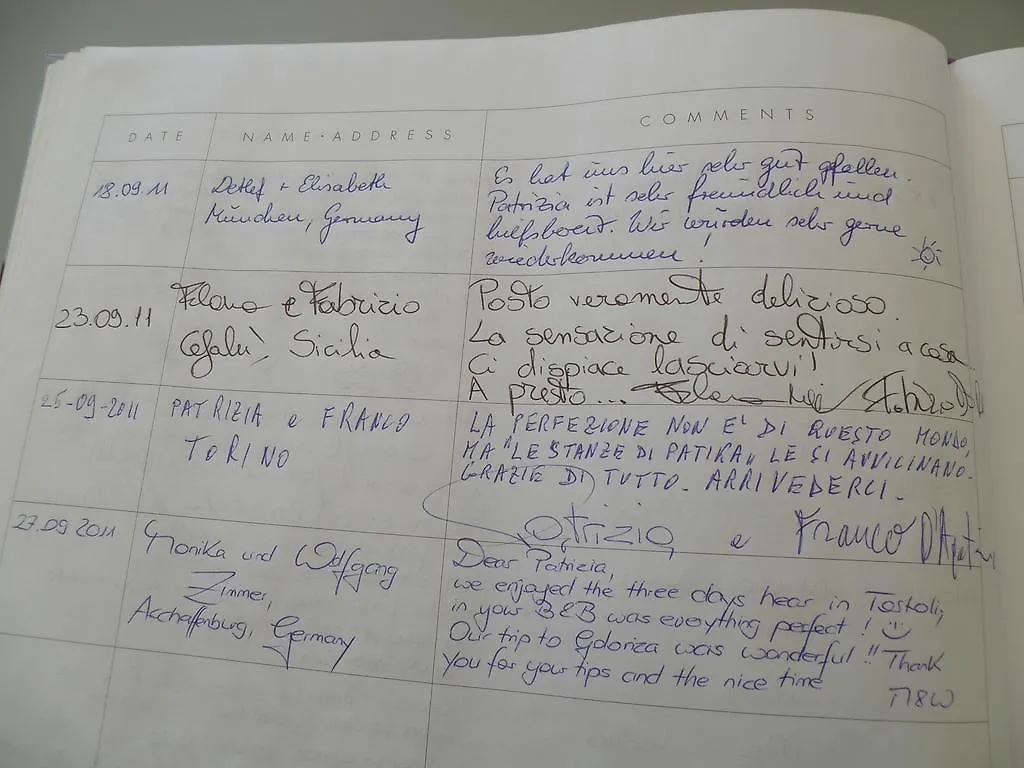 DATE NAME·ADDRESS COMMENTS
18.09.11
Detlef + Elisabeth
München, Germany
Es hat uns hier sehr gut gefallen.
Patrizia ist sehr freundlich und
hilfsbereit. Wir würden sehr gerne
wiederkommen!
23.09.11
Elena e Fabrizio
Cefalù, Sicilia
Posto veramente delizioso.
La sensazione di sentirsi a casa.
Ci dispiace lasciarvi!
A presto... Elena
25-09-2011
PATRIZIA e FRANCO
TORINO
LA PERFEZIONE NON E' DI QUESTO MONDO,
MA "LE STANZE DI PATIRA" LE SI AVVICINANO.
GRAZIE DI TUTTO. ARRIVEDERCI.
Patrizia e Franco
27.09.2011
Monika und Wolfgang
Zimmer,
Aschaffenburg, Germany
Dear Patrizia,
we enjoyed the three days hear in Tortoli;
in your B&B was everything perfect!
Our trip to Goloriza was wonderful!! Thank
you for your tips and the nice time
M&W